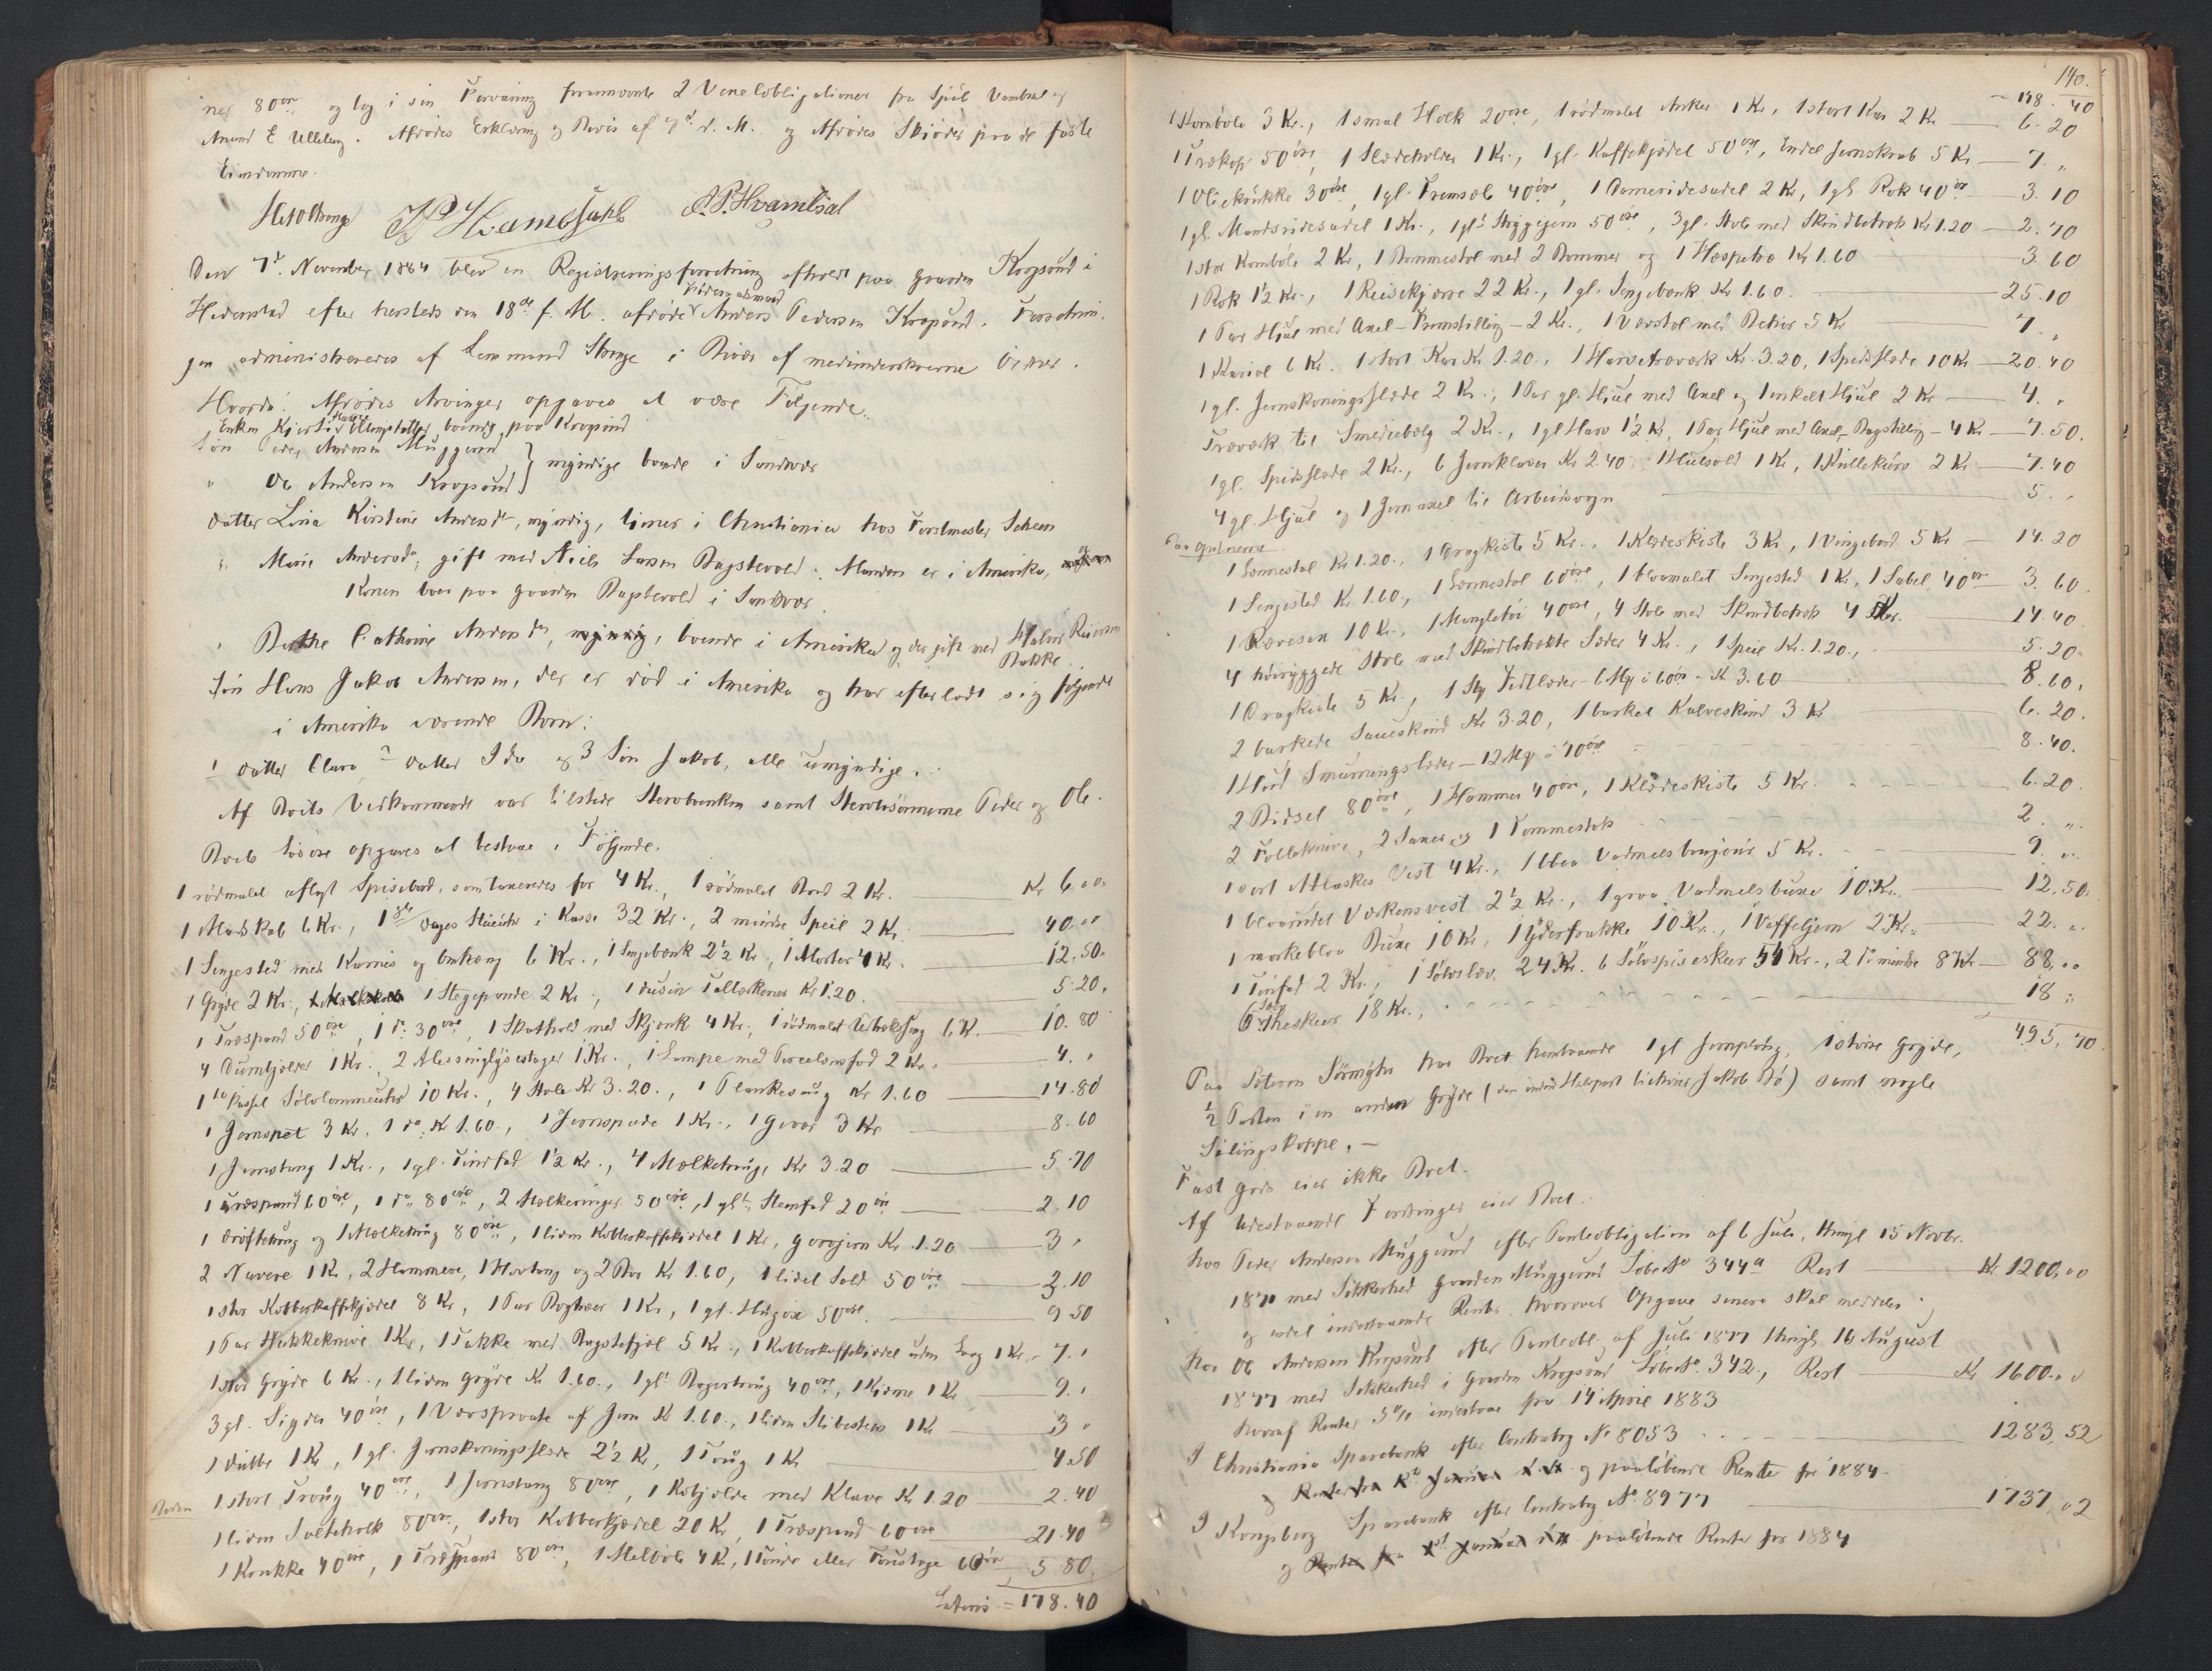 ner 80 øre og tog i sin Forvaring fremvente 2 Vene Lobligationer fra Spil Vambsal og
Amund E Ulleberg. Afdødes Erklæring og Bevis af 7de d. M. og Afdødes Skjøder paa de faste
Eiendomme.
H. P. Hvambsahl A. P. Hvambsal
Den 7d. November 1884 blev en Registreringsforretning afholdt paa gaarden Krogsund i
Hedenstad efter hersteds den 18de f. M. afdøde Anders Pedersen Krogsund. Forretnin-
gen administreredes af Lensmand Stenge i Bivær af medunderskrevne Vidner.
Hvorda: Afdødes Arvinger opgaves at være Følgende.
Enken Kjersti Hansdatter boende paa Krogsund
Søn Peder Andersen Muggerud
" Ole Andersen Krogsund } myndige boende i Sandsvær
Datter Lina Kirstine Andersdt, myndig, tjener i Christiania hos Forstmester Scheen
" Marie Andersdt, gift med Niels Larsen Bagstevold. Manden er i Amerika,
Konen boer paa gaarden Bagstevold i Sandsvær.
" Berthe Cathrine Andersdtr, myndig, boende i Amerika og der gift med Halvor Reiersen
Bakke
Søn Hans Jakob Andersen, der er død i Amerika og har efterladt sig følgende
i Amerika værende Børn:
1 Datter Clara 2 Datter Ida og 3 Søn Jakob, alle umyndige.
Af Boets Vedkommende var tilstede Stervboenken samt Stervbosønnerne Peder og Ole.
Boets Løsøre opgaves at bestaae i Følgende.
1 rødmalet aflagt Spisebord, som taxeredes for 4 Kr., 1 rødmalet Bord 2 Kr. Kr 6.00
1 Madskab 6 Kr., 1 8te Dages Stueuhr i Kasse 32 Kr., 2 mindre Speil 2 Kr. 40.00
1 Sengested med Karnis og Omhæng 6 Kr., 1 Sengebænk 2½ Kr., 1 Morter 4 Kr. 12.50.
1 Gryde 2 Kr., 1 Stegepande 2 Kr., 1 dusin Tallerkener Kr 1.20. 5.20.
1 Træspand 50 øre, 1 do 30 øre, 1 Skathold med Skjænk 4 Kr., 1 rødmalet Udtræksseng 6 Kr. 10.80
4 Dunkjolder 1 Kr., 2 Messinglysestager 1 Kr., 1 Lampe med Porcelænsfod 2 Kr. 4.
1 to kapsel Sølvlommeuhr 10 Kr., 4 Stole Kr 3.20., 1 Plankesaug Kr 1.60 14.80
1 Jernspet 3 Kr. 1 do. K 1.60., 1 Jernspade 1 Kr., 1 Gevær 3 Kr 8.60
1 Jernstang 1 Kr., 1 gl. Tinfad 1½ Kr., 4 Melketrug, Kr 3.20 5.70
1 Træspand 60 øre, 1 do 80 øre, 2 Melkeringer 50 øre, 1 glt Stenfad 20 øre 2.10
1 Drøftetrug og 1 Melketrug 80 øre, 1 liden Kobberkaffekjedel 1 Kr, gorojern Kr. 1.20 3.
2 Navere 1 K, 2 Hammere, 1 Hovtang og 2 Bor Kr 1.60, 1 lidet Sold 50 øre 3.10
1 stor Kobberkaffekjedel 8 Kr, 1 Par Bogtræer 1 Kr, 1 gl. Hugøxe 50 øre. 9 50
1 Par Hakkeknive 1 Kr, 1 Takke med Bagstefjæl 5 Kr., 1 Kobberkaffekjedel uden Laag 1 Kr, 7.
1 stor Gryde 6 Kr., 1 liden Gryde Kr 1.60., 1 glt Bagertrug 40 øre, 1 Kjerne 1 Kr 9.
3 gl. Sigder 40 øre, 1 Vævsprode af Jern K 1.60, 1 liden Slibesten 1 Kr 3
1 Dubbe 1 Kr, 1 gl. Jernskoningsslæde 2½ Kr, 1 Toug 1 Kr 4.50
Boden 1 stort Troug 40 øre, 1 Jernstang 80 øre, 1 Kobjelde med Klave Kr 1.20 2.40
1 liden Salteholk 80 øre, 1 stor Kobberkjedel 20 Kr, 1 Træspand 60 øre 21.40
1 Krukke 40 øre, 1 Træspand 80 øre, 1 Melbøle 4 K, 1 Tønde eller Foustage 60 øre 5 80
Lateris = 178.40
140.
178.40
1 Kornbøle 3 Kr., 1 smal Holk 20 øre, 1 rødmalet Anker 1 Kr, 1 stort Kar 2 Kr 6.20
1 Trækop 50 øre, 1 Slædeholder 1 Kr., 1 gl. Kaffekjedel 50 øre, Endel Jernskrab 5 Kr 7. "
1 Oliekrukke 30 øre, 1 gl. Fremsæle 40 øre, 1 Dameridesadel 2 Kr, 1 gl. Rok 40 øre 3.10
1 gl. Mandsridesadel 1 Kr., 1 glt Stryggejern 50 øre, 3 gl. Stole med Skindbetræk Kr 1.20 2.70
1 stor Kornbøle 2 Kr, 1 Bommestol med 2 Bommer og 1 Hespetræ Kr 1.60 3.60
1 Rok 1½ Kr., 1 Reisekjærre 22 Kr., 1 gl. Sengebænk Kr 1.60. 25.10
1 Par Hjul med Axel - Fremstilling - 2 Kr., 1 Vævstol med Reker 5 Kr 7. "
1 Kariol 6 Kr. 1 stort Kar Kr 1.20., 1 Harvetrøværk Kr. 3.20, 1 Spidsslæde 10 Kr 20.40
1 gl. Jernskoningsslæde 2 Kr., 1 Par gl. Hjul med Axel og 1 enkelt Hjul 2 Kr 4. "
Træværk til Smedebælg 2 Kr., 1 gl Harv 1½ Kr, 1 Par Hjul med Axel - Bagstilling - 4 Kr 7.50.
1 gl. Spidsslæde 2 Kr., 6 Jernklaver Kr 2.40, 1 Hulsold 1 Kr, 1 Kullekurv 2 Kr 7.40
4 gl. Hjul og 1 Jernaxel til Arbeidsvogn 5. "
Paa Gulvene
1 Lænestol Kr 1.20., 1 Dragkiste 5 Kr., 1 Klædeskiste 3 Kr, 1 Vingebord 5 Kr 14.20
1 Sengested Kr 1.60, 1 Lænestol 60 øre, 1 blaamalet Sengested 1 Kr, 1 Sabel 40 øre 3.60
1 Rævesax 10 Kr., 1 Mangletøi 40 øre, 4 Stole med Skindbetræk 4 Kr. 14.40
4 høiryggede Stole med Skindbetrækte Sæder 4 Kr., 1 Speil Kr. 1.20., 5.20
1 Dragkiste 5 Kr., 1 Stk Fedtlæder - 6 Mk à 60 øre - K 3.60 8.60.
2 barkede Saueskind Kr 3.20, 1 barket Kalveskind 3 Kr 6.20.
1 Hud Smurningslæder - 12 Mk à 70 øre 8.40.
2 Bidsel 80 øre, 1 Hammer 40 øre, 1 Klædeskiste 5 Kr. 6.20
2 Folleknive, 2 Saxer og 1 Tommestok 2. "
1 sort Atlaskes Vest 4 Kr., 1 blaa Vadmelsbonjour 5 Kr. 9. "
1 blaarudet Værkensvest 2½ Kr., 1 graa Vadmelsbuxe 10 Kr. 12.50.
1 mørkeblaa Buxe 10 Kr, 1 Yderfrakke 10 Kr., 1 Vaffeljern 2 Kr. 22. "
1 Tinfad 2 Kr, 1 Sølvslev 24 Kr. 6 Sølvspiseskeer 54 Kr., 2 do mindre 8 Kr 88,00
6 Sølv Theskeer 18 Kr., 18 "
495,70.
Paa Pladsen Sørmyhr har Boet henstaaende 1 gl Jernplog, 1 større Gryde,
½ Parten i en anden Gryde (den anden Halvpart tilhører Jakob Bø) samt nogle
Silingskoppe. —
Fast Gods eier ikke Boet.
Af Udestaaende Fordringer eier Boet.
hos Peder Andersen Muggerud efter Panteobligation af 6 Juli, thingl 15 Novbr.
1870 med Sikkerhed Gaarden Muggerud Løbe No 344a Rest Kr 1200,00
og endel indestaaende Renter, hvorover Opgave senere skal meddeles.
hos Ole Andersen Krogsund efter Panteobl. af Juli 1877 thingl. 16 August
1877 med Sikkerhed i Gaarden Krogsund Løbe No. 342, Rest Kr 1600.00
hvoraf Renter 5% indestaae fra 14 April 1883
I Christiania Sparebank efter Contrabog No 8053 1283,52
og Renter fra 1ste Januar d. A. og paaløbende Renter for 1884
I Kongsberg Sparebank efter Contrabog No. 8977 1737,02
og Renter fra 1st Januar d.A. paaløbende Renter for 1884